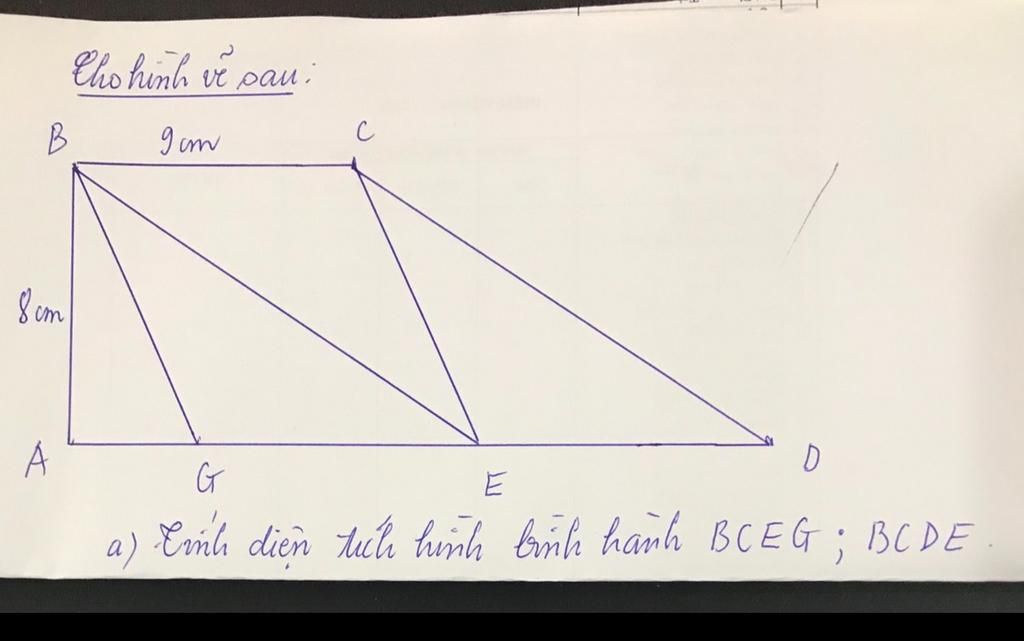 Cho hình vẽ sau:
B 9cm C
8cm
A G E D
a) Tính diện tích hình bình hành BCEG ; BCDE.